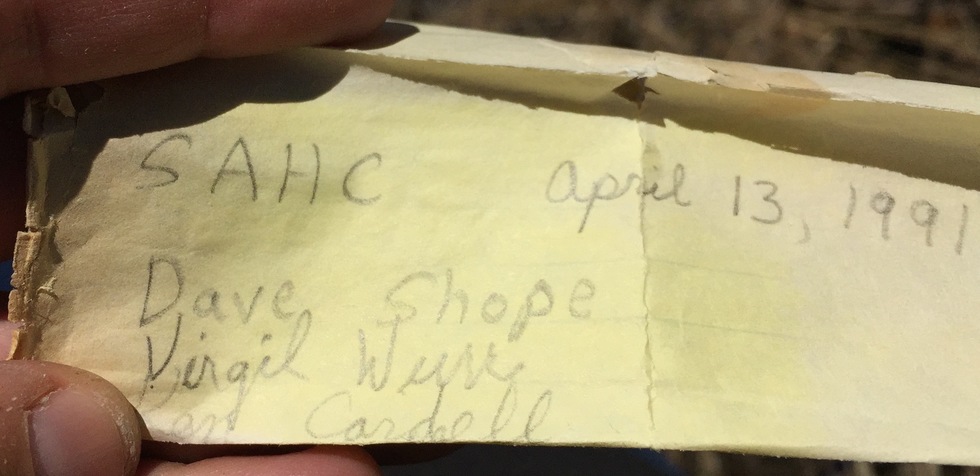 SAHC April 13, 1991
Dave Shope
Virgil
Cardell